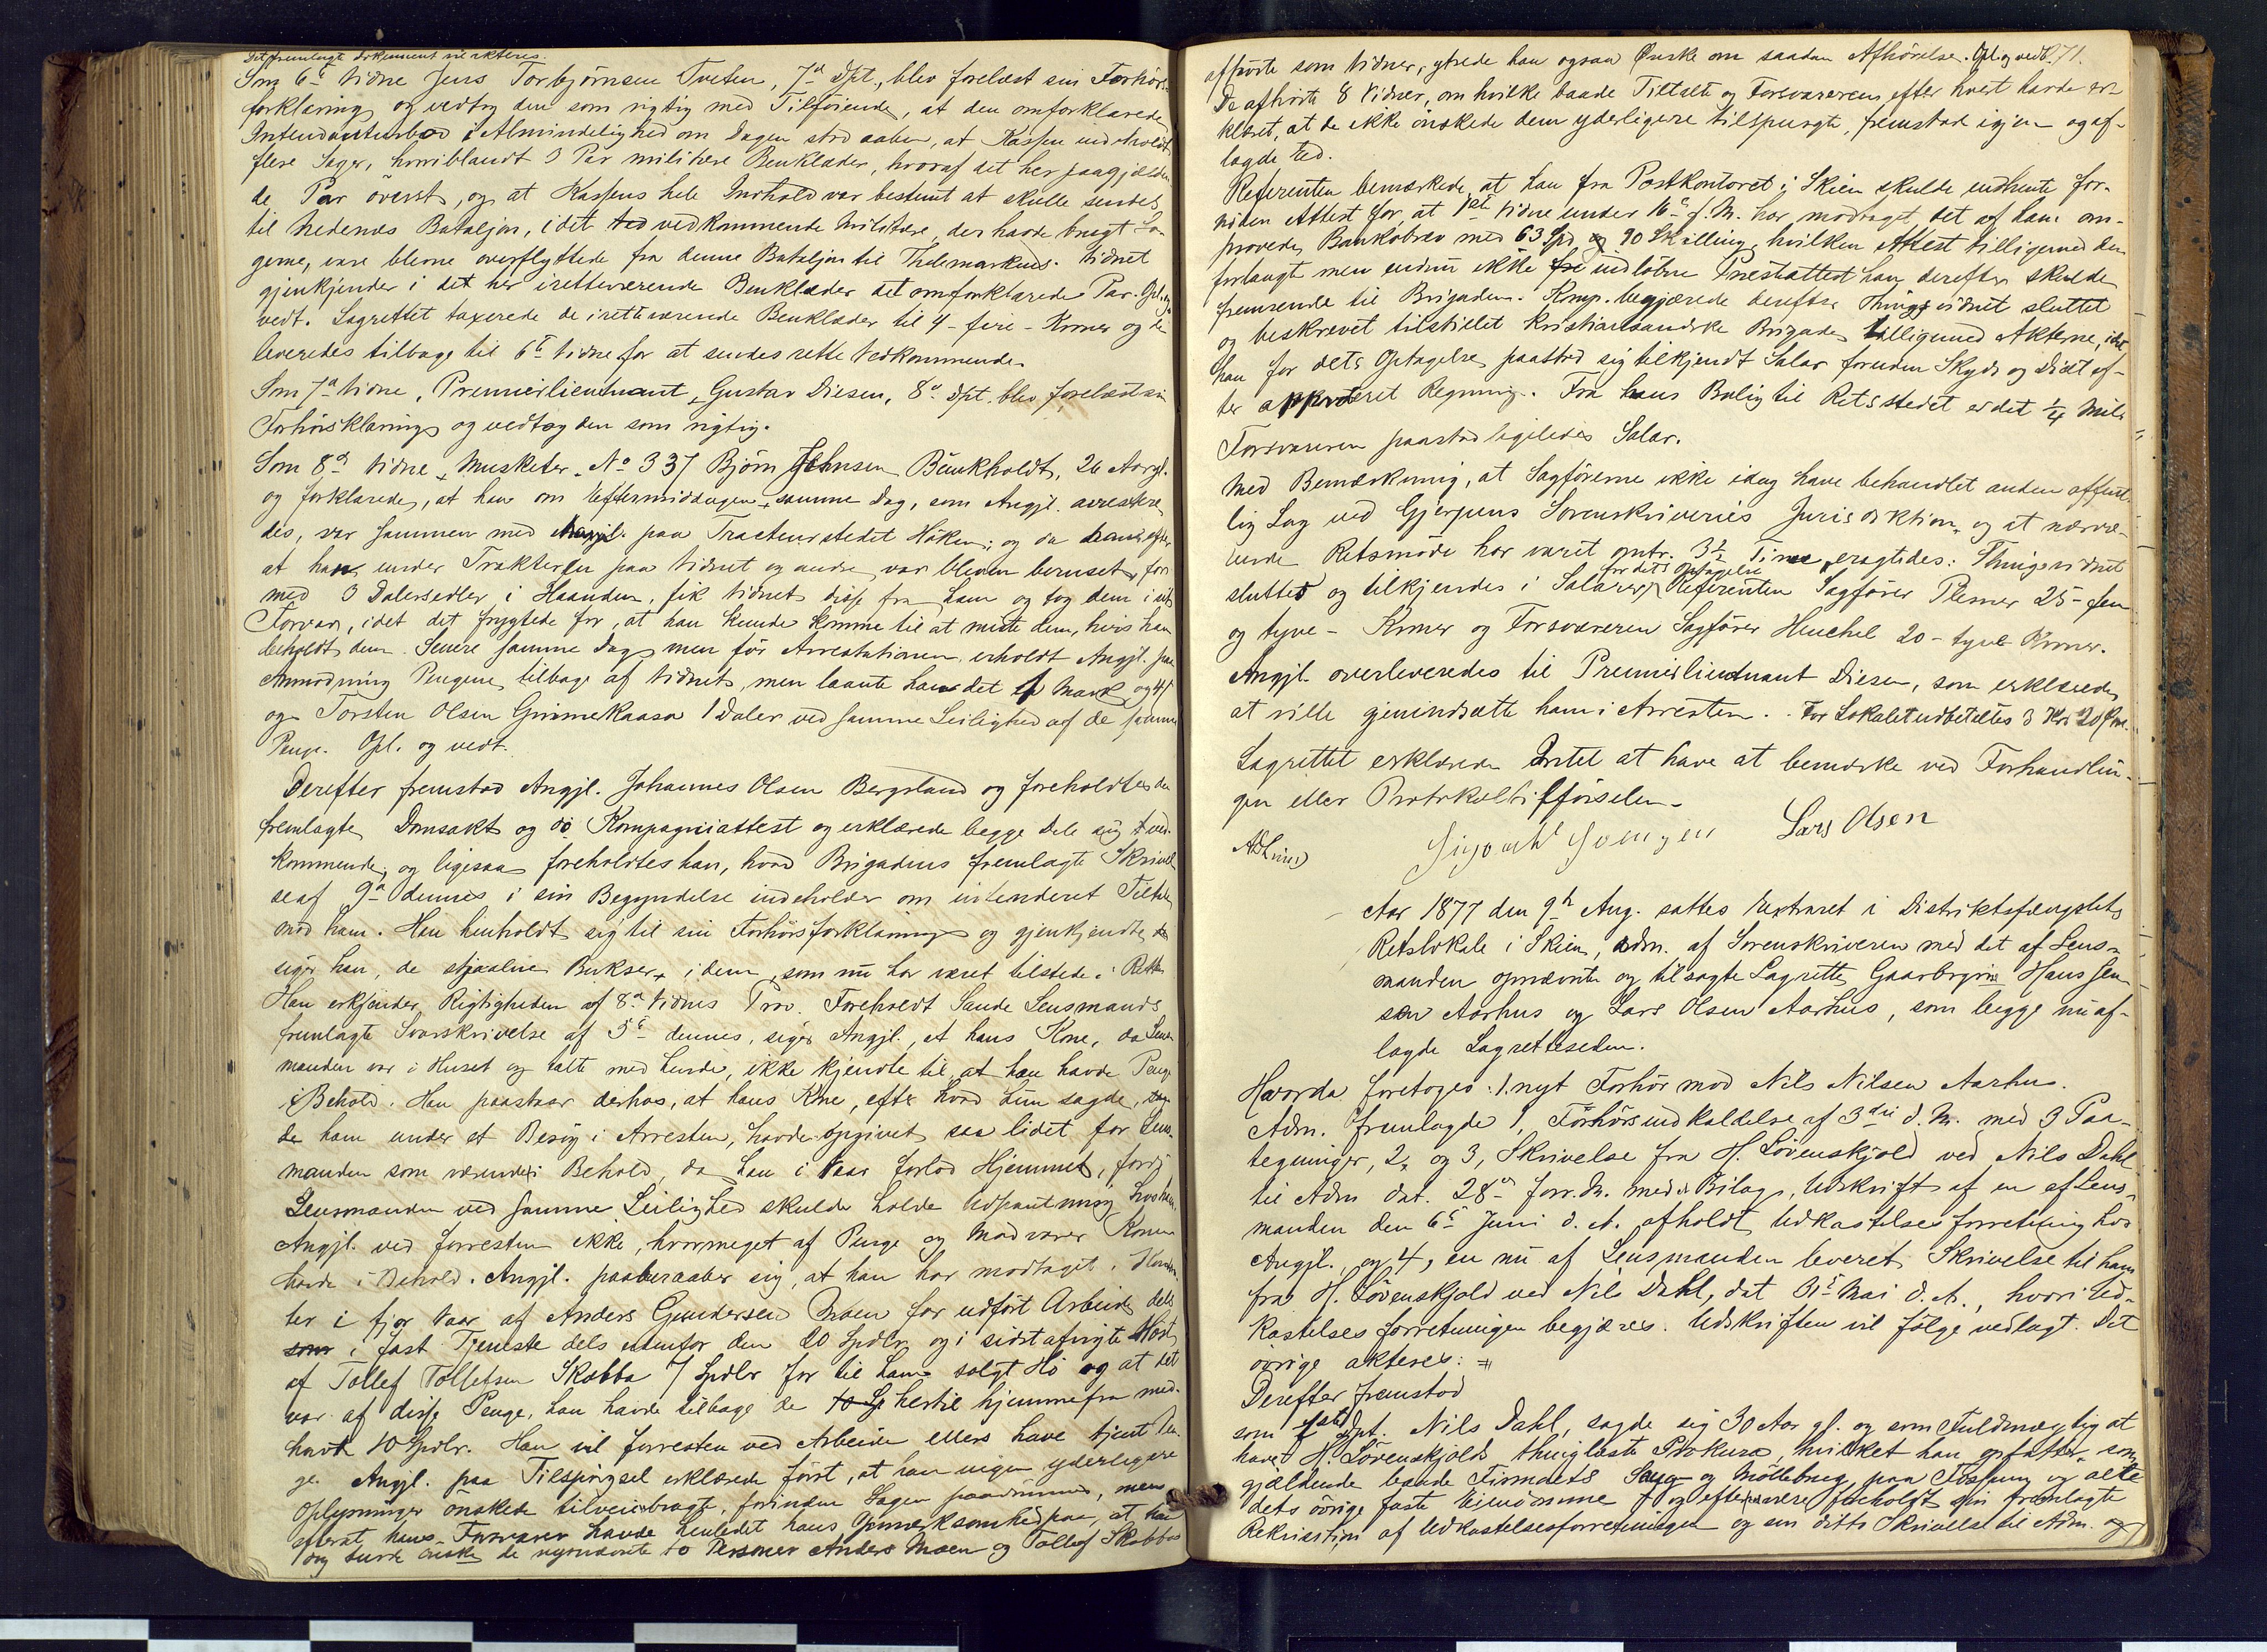 Det fremlagte Dokument vil akteres.
Som 6te Vidne Jens Torbjørnsen Tveten, 7de Dpt., blev forelæst sin Forhørs-
forklaring og vedtog den som rigtig med Tilføiende, at den omforklarede
i Almindelighed om Dagen stod aaben, at Kassen indeholdt
flere Sager, hvoriblandt 3 Par militære Benklæder, hvoraf det her paagjælden-
de Par øverst, og at Kassens hele Indhold var bestemt at skulle sendes
til Nedenæs Bataljon, idet ved vedkommende Militære, der havde brugt Sa-
gerne, vare blevne overflyttede fra denne Bataljon til Thelemarkens. Vidnet
gjenkjender i det her iretteværende Benklæder det omforklarede Par. Opl. og
vedt. Lagrettet taxerede de iretteværende Benklæder til 4 - fire - Kroner og de
leveredes tilbage til 6te Vidne for at sendes rette Vedkommende.
Som 7de Vidne, Premierlieutnant, Gustav Diesen, 8de Dpt. blev forelæst sin
Forhørsklaring og vedtog den som rigtig.
Som 8de Vidne, Musketer No 337 Bjørn Johnsen Bäukholdt, 26 Aar gl.
og forklarede, at han om Eftermiddagen samme Dag, som Angjl. arrestere-
des, var sammen med Angjl. paa Tracteurstedet Håken; og da denne efter
at have under Trakteren paa Vidnet og andre var bleven beruset, for
med 3 Dalersedler i Haanden, fik Vidnet disse fra ham og tog dem i sit
Forvar, idet det frygtede for, at han kunde komme til at miste dem, hvis han
beholdt dem. Senere samme Dag men før Arrestationen erholdt Angjl. paa
Anmodning Pengene tilbage af Vidnet, men laante ham det Mark og
og Torsten Olsen Grimekaasa 1 Daler ved samme Leilighed af de samme
Penge. Opl. og vedt.
Derefter fremstod Angjl. Johannes Olsen Bergsland og foreholdtes den
fremlagte Domsakt og do Kompagniattest og erklærede begge Dele sig ved-
kommende, og ligesaa foreholdtes han, hvad Brigadens fremlagte Skrivel-
se af 9de dennes i sin Begyndelse indeholder om intenderet Tiltale
mod ham. Han henholdt sig til sin Forhørsforklaring og gjenkjendte,
siger han, de stjaalne Buxer, i dem, som nu har været tilstede i Retten.
Han erkjender Rigtigheden af 8de Vidnes Prov. Foreholdt Sande Lensmands
fremlagte Svarskrivelse af 5te dennes, siger Angjl., at hans Kone, da Lens-
manden var i Huset og talte med hende, ikke kjendte til, at han havde Penge
i Behold. Han paastaar derhos, at hans Kone, efter hvad hun sagde,
da ham under et Besøg i Arresten, havde opgivet saa lidet for Lens-
manden som værende i Behold, da han i Vaar forlod Hjemmet, fordi
Lensmanden ved samme Leilighed skulde holde Udpantning hos ham.
Angjl. ved forresten ikke, hvormeget af Penge og Madvarer Konen
havde i Behold. Angjl. paaberaaber sig, at han har modtaget i Kontan-
ter i fjor Vaar af Anders Gundersen Moen for udført Arbeide dels
som i fast Tjeneste dels udenfor den 20 Spdlr. og i sidstafvigte Høst
af Tollef Tollefsen Skobba 7 Spdlr for til ham solgt Hø og at det
var af disse Penge, han havde tilbage de 10 Sp hertil hjemmefra med-
havte 10 Spdlr. Han vil forresten ved Arbeide ellers have tjent Pen-
ge. Angjl. paa Tilspørgsel erklærede først, at han ingen yderligere
Oplysninger ønskede tilveiebragte, forinden Sagen paadømmes, men
efterat hans Forsvarer havde henledet hans Opmærksomhed paa, at han
dog turde ønske de nysnævnte to Personer Anders Moen og Tollef Skobba
afhørte som Vidner, ytrede han ogsaa Ønske om saadan Afhørelse. Opl. og vedt. 71.
De afhørte 8 Vidner, om hvilke baade Tiltalte og Forsvareren efter hvert havde er-
klæret, at de ikke ønskede dem yderligere tilspurgte, fremstod igjen og af-
lagde Ed.
Referenten bemærkede, at han fra Postkontoret i Skien skulde indhente for-
nøden Attest for, at 1ste Vidne under 16de f. M. har modtaget det af ham om-
provede Bankobrev med 63 Spd og 90 Skilling, hvilken Attest tilligemed den
forlangte men endnu ikke indløbne Præsteattest han derefter skulde
fremsende til Brigaden. Komp. begjærede derefter Thingsvidnet sluttet
og beskrevet tilstillet kristiansandske Brigade tilligemed Akterne, idet
han for dets Optagelse paastod sig tilkjendt Salær foruden Skyds og Diæt ef-
ter approberet Regning. Fra hans Bolig til Retsstedet er det 1/4 Mil.
Forsvareren paastod ligeledes Salær.
Med Bemærkning, at Sagførerne ikke idag have behandlet anden offent-
lig Sag ved Gjerpens Sorenskriveries Jurisdiktion, og at nærvæ-
rende Retsmøde har varet omtr. 3½ Time, eragtedes: Thingsvidnet
for dets Optagelse
sluttet og tilkjendes i Salær Referenten Sagfører Plesner 25 - fem
og tyve - Kroner og Forsvareren Sagfører Henchel 20 - tyve Kroner.
Angjl. overleveredes til Premierlieutnant Diesen, som erklærede
at ville gjenindsætte ham i Arresten. For Lokalet udbetaltes 3 Kr. 20 Øre.
Lagrettet erklærede Intet at have at bemærke ved Forhandlin-
gen eller Protokoltilførselen.
Lars Olsen
Aar 1877 den 9de Aug. sattes Extraret i Distriktsfængslets
Retslokale i Skien, adm. af Sorenskriveren med det af Lens-
manden opnævnte og tilsagte Lagrette, Gaardbrugerne Hans Jen-
sen Aarhus og Lars Olsen Aarhus, som begge nu af-
lagde Lagretteseden.
Hvorda foretoges: 1. nyt Forhør mod Nils Nilsen Aarhus.
Adm. fremlagde 1, Forhørsindkaldelse af 3die d. M. med 3 Paa-
tegninger, 2, og 3, Skrivelse fra H. Løvenskjold ved Nils Dahl
til Adm dat. 28de forr. M. med Bilag, Udskrift af en af Lens-
manden den 6te Juni d. A. afholdt Udkastelsesforretning hos
Angjl. og 4, en nu af Lensmanden leveret Skrivelse til ham
fra H. Løvenskjold ved Nils Dahl, dat 31te Mai d. A., hvori Ud-
kastelsesforretningen begjæres. Udskriften vil følge vedlagt. Det
øvrige akteres:
Derefter fremstod
som 1ste Dpt. Nils Dahl, sagde sig 30 Aar gl. og som Fuldmægtig at
have H. Løvenskjolds thinglæste Prokura, hvilket han opfatter som
gjældende baade Firmaets Saug og Møllebrug paa Fossum og alle
dets øvrige faste Eiendomme og efter foreholdt sin fremlagte
Rekvisition af Udkastelsesforretningen og sin ditto Skrivelse til Adm. og